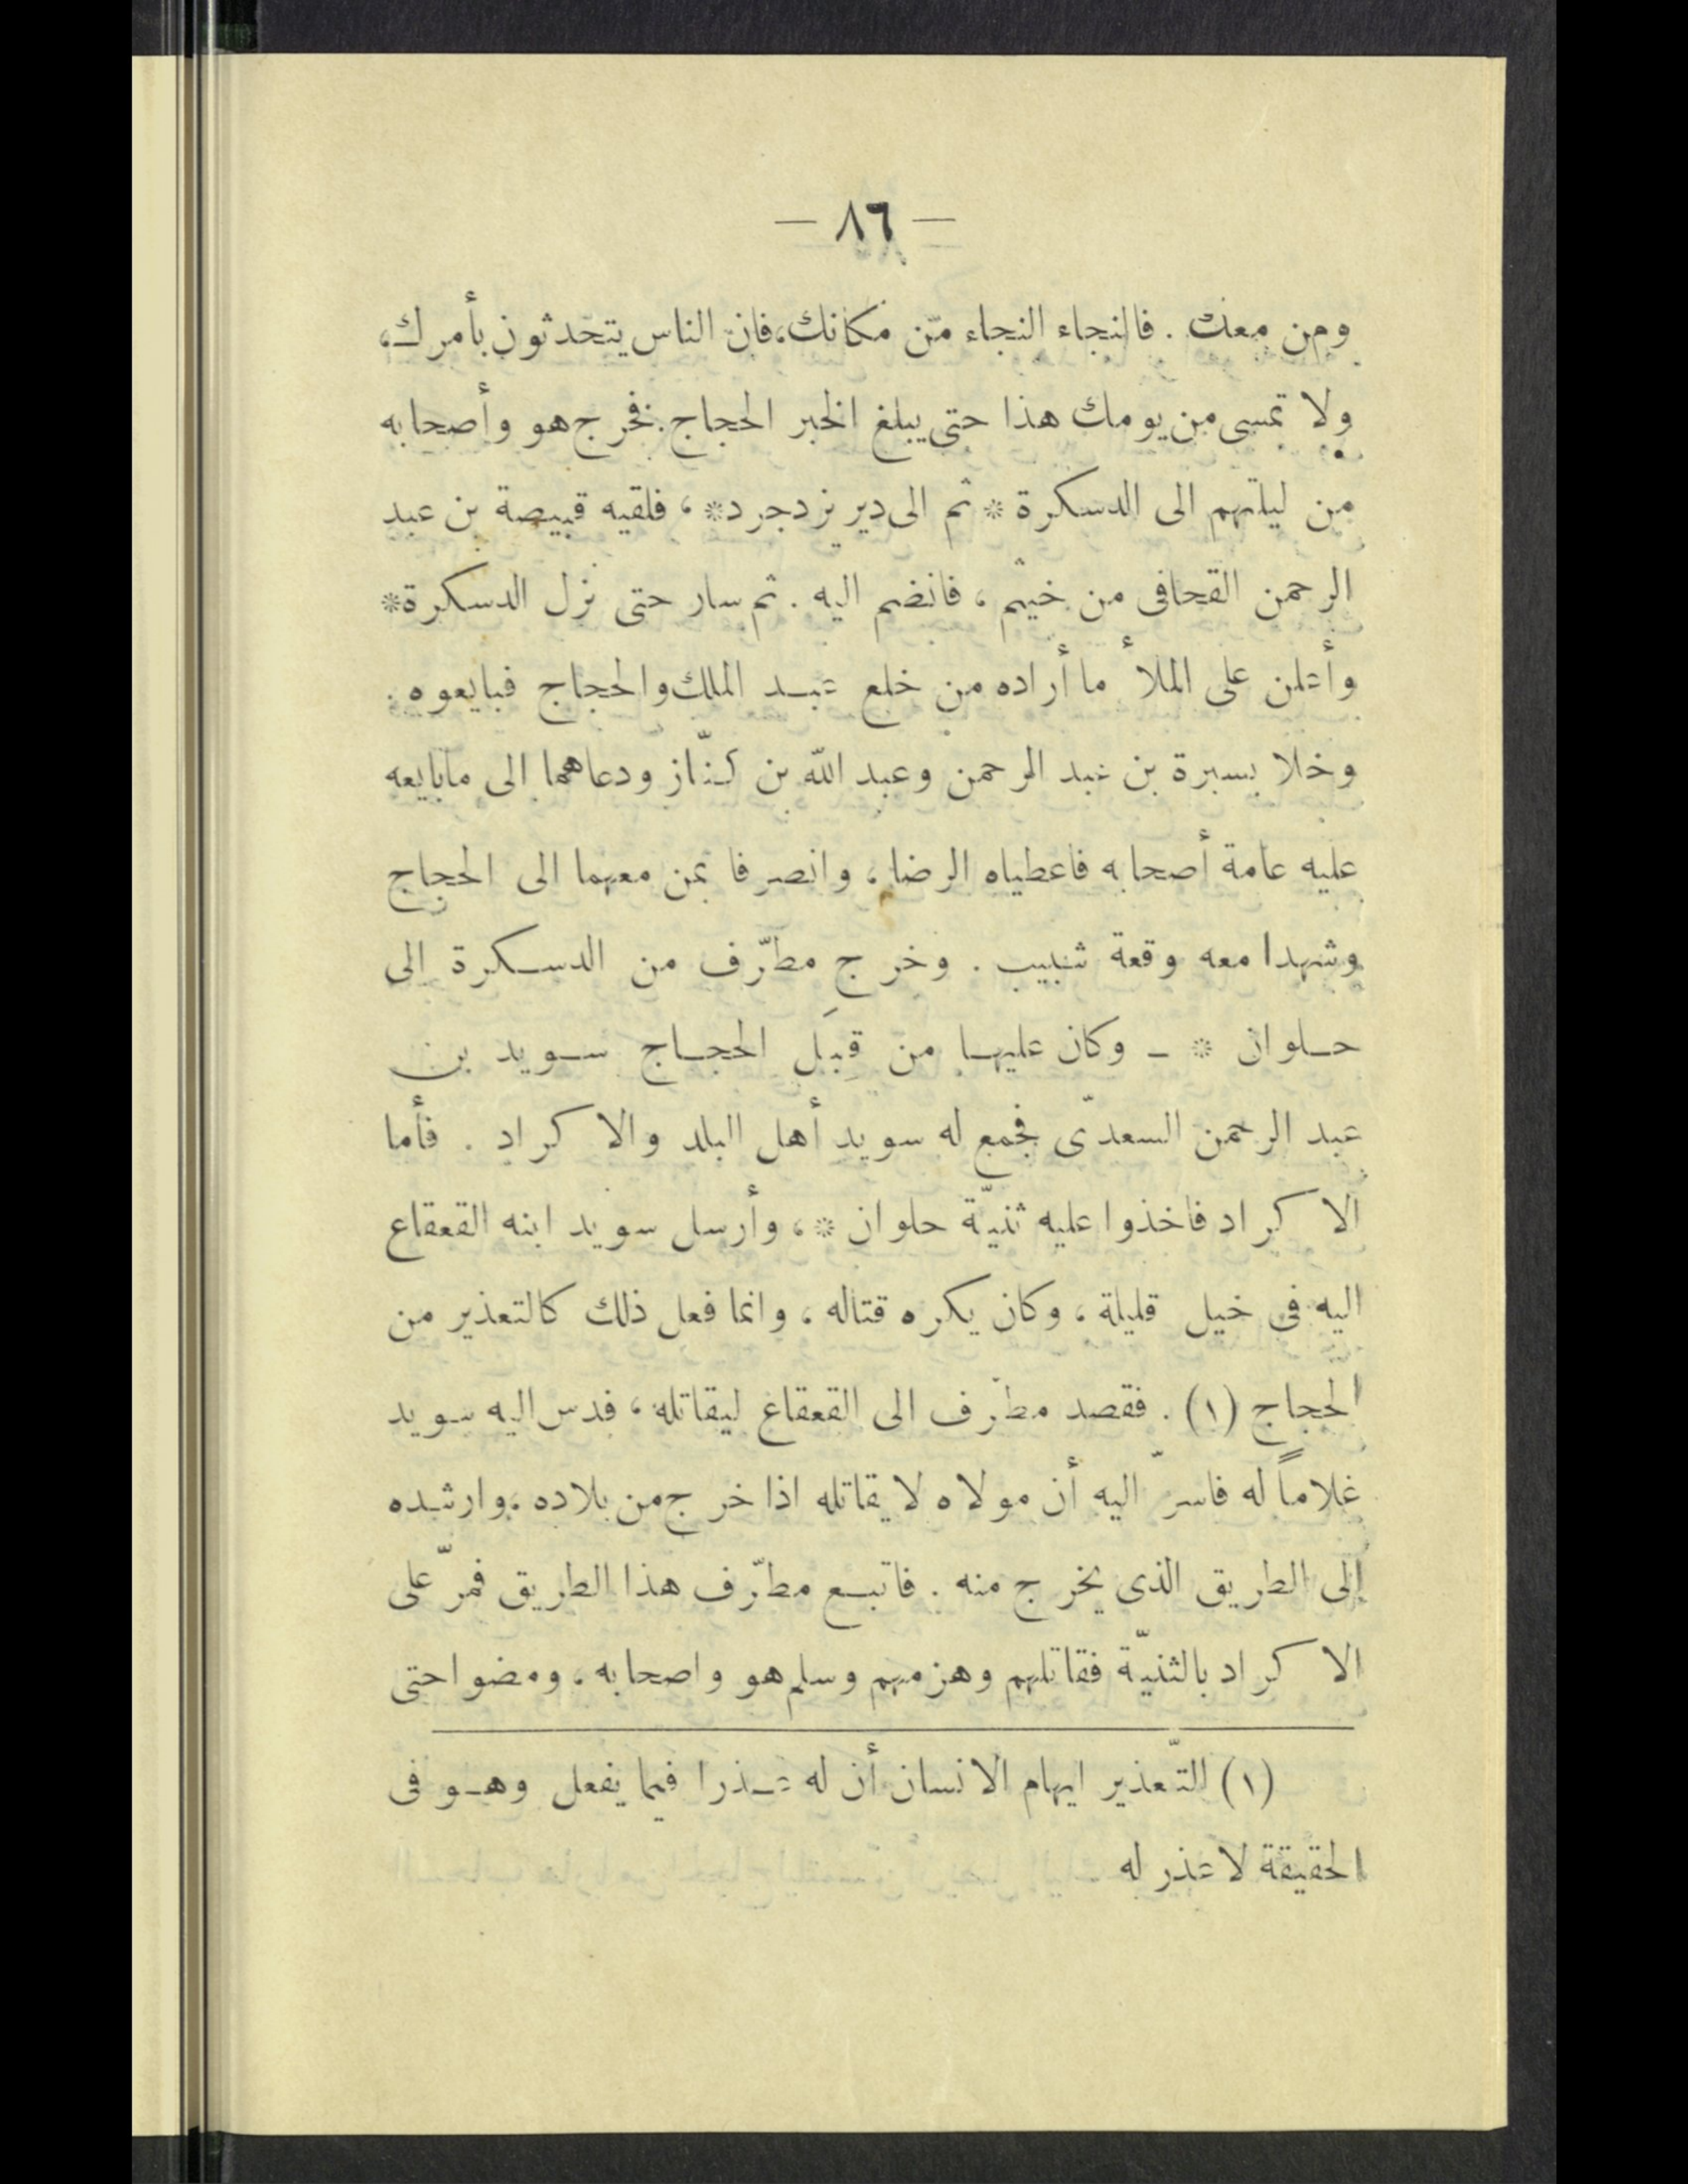 — ٨٦ —
ومن معك . فالنجاء النجاء من مكانك، فان الناس يتحدثون بأمرك،
ولا تمسى من يومك هذا حتى يبلغ الخبر الحجاج . فخرج هو وأصحابه
من ليلتهم الى الدسكرة * ثم الى دير يزدجرد * ، فلقيه قبيصة بن عبد
الرحمن القحافى من خيثم ، فانضم اليه . ثم سار حتى نزل الدسكرة *
وأعلن على الملأ ما أراده من خلع عبد الملك والحجاج فبايعوه .
وخلا بسبرة بن عبد الرحمن وعبد الله بن كنّاز ودعاهما الى مابايعه
عليه عامة أصحابه فاعطياه الرضا ، وانصرفا بمن معهما الى الحجاج
وشهدا معه وقعة شبيب . وخرج مطرّف من الدسكرة الى
حلوان * ـ وكان عليها من قِبَل الحجاج سويد بن
عبد الرحمن السعدىّ فجمع له سويد أهل البلد والا كراد . فأما
الا كراد فاخذوا عليه ثنيّة حلوان * ، وأرسل سويد ابنه القعقاع
اليه فى خيل قليلة ، وكان يكره قتاله ، وانما فعل ذلك كالتعذير من
الحجاج (١) . فقصد مطرّف الى القعقاع ليقاتله ، فدس اليه سويد
غلاماً له فاسرّ اليه أن مولاه لا يقاتله اذا خرج من بلاده ، وارشده
إلى الطريق الذى يخرج منه . فاتبع مطرّف هذا الطريق فمرّ على
الا كراد بالثنيّة فقاتلهم وهزمهم وسلم هو واصحابه ، ومضوا حتى
(١) التّعذير ايهام الانسان أن له عذرا فيما يفعل وهو فى
الحقيقة لا عذر له